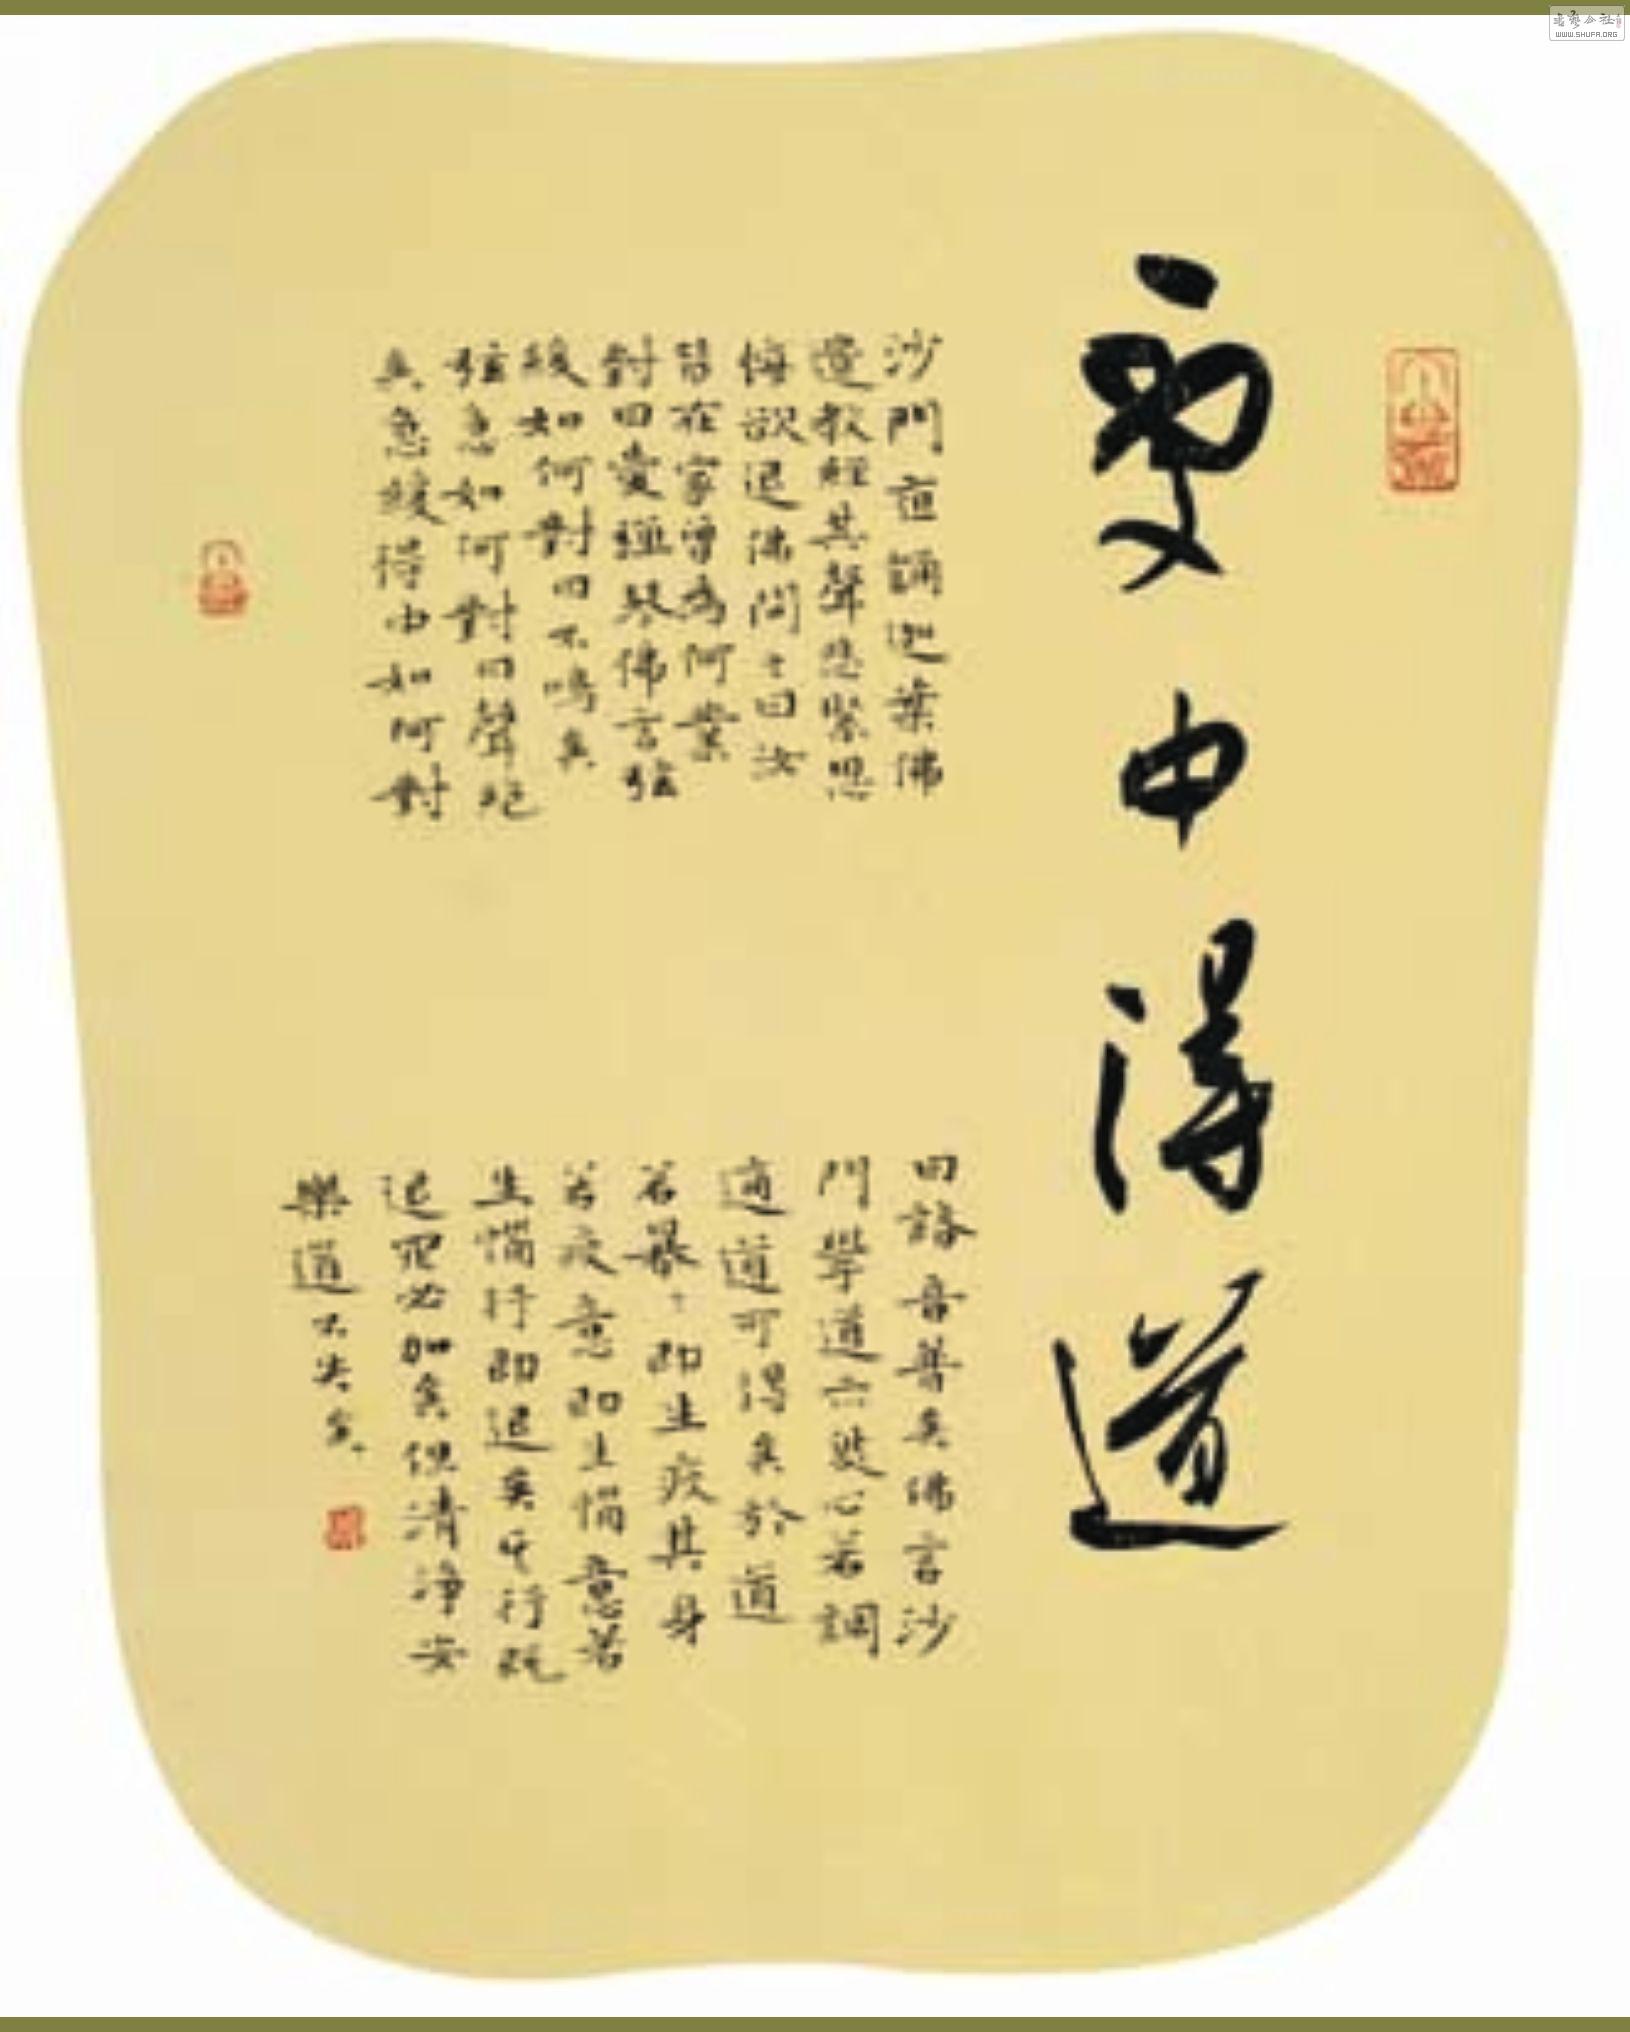 處中得道
沙門夜誦迦葉佛
遺教經其聲悲緊思
悔欲退佛問之曰汝
昔在家曾為何業
對曰愛彈琴佛言弦
緩如何對曰不鳴矣
弦急如何對曰聲絕
矣急緩得中如何對
曰諸音普矣佛言沙
門學道亦然心若調
適道可得矣於道
若暴々即生疲其身
若疲意即生惱意若
生惱行即退矣其行既
退罪必加矣但清淨安
樂道不失矣
WWW.SHUFA.ORG